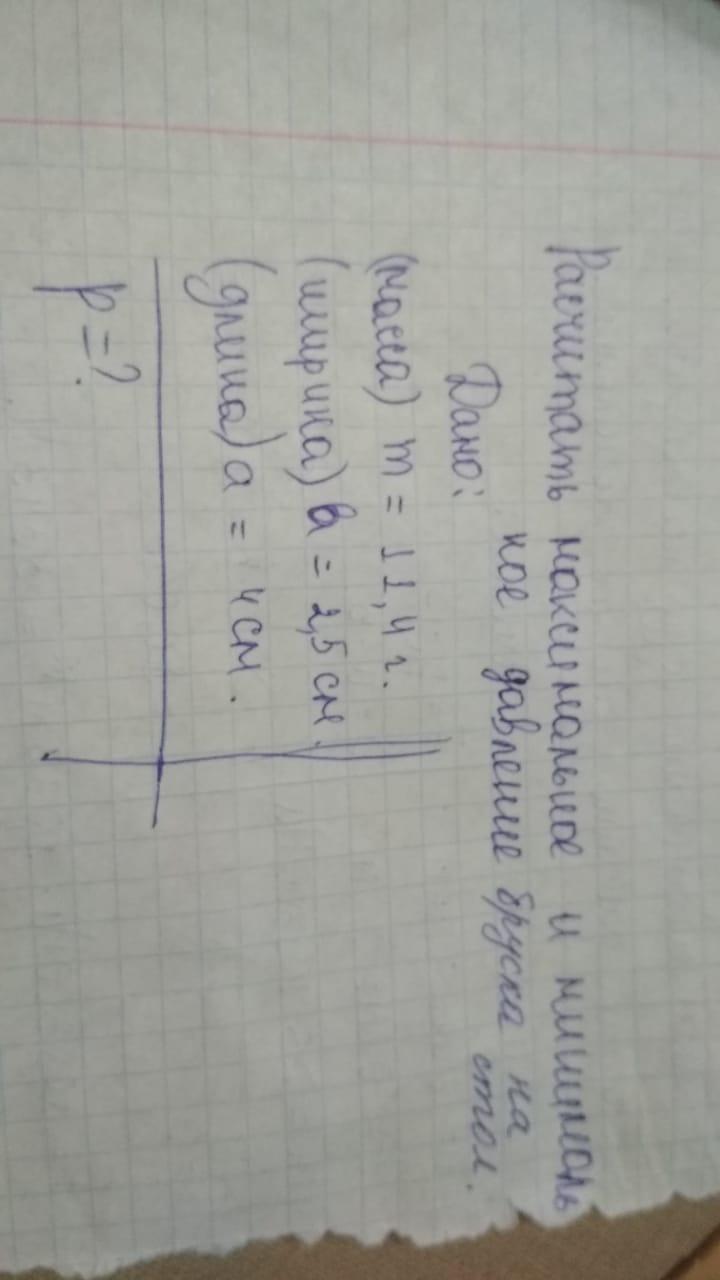 Расчитать максимальное и минималь
ное давление бруска на
стол.
Дано:
(масса) m = 11,4 г.
(ширина) в = 2,5 см.
(длина) а = 4 см.
p = ?